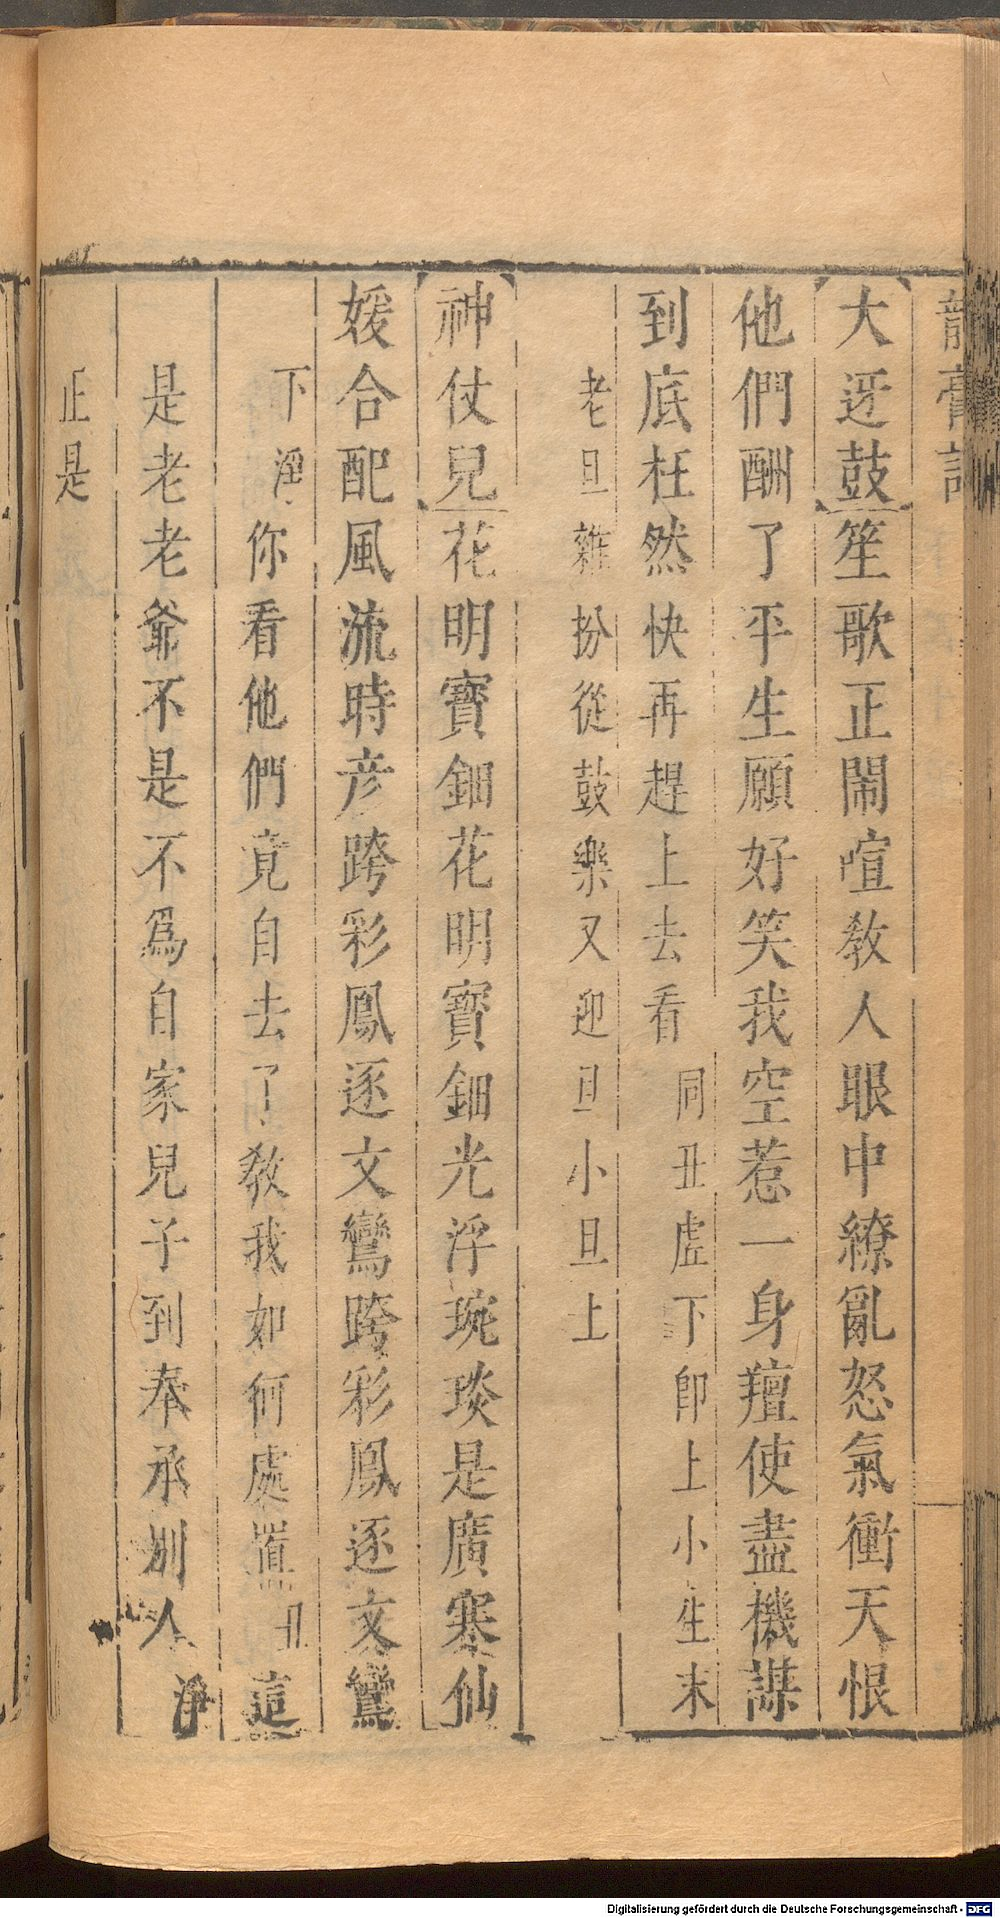 龍膏記
大迓鼓笙歌正鬧喧教人眼中繚亂怒氣衝天恨
他們酬了平生願好笑我空惹一身羶使盡機謀
到底枉然快再趕上去看同丑虛下即上小生末
老旦雜扮從鼓樂又迎旦小旦上
神仗兒花明寶鈿花明寶鈿光浮琬琰是廣寒仙
媛合配風流時彦跨彩鳳逐文鸞跨彩鳳逐文鸞
下淨你看他們竟自去了教我如何處置丑這
是老老爺不是不爲自家兒子到奉承別人淨
正是
Digitalisierung gefördert durch die Deutsche Forschungsgemeinschaft - DFG